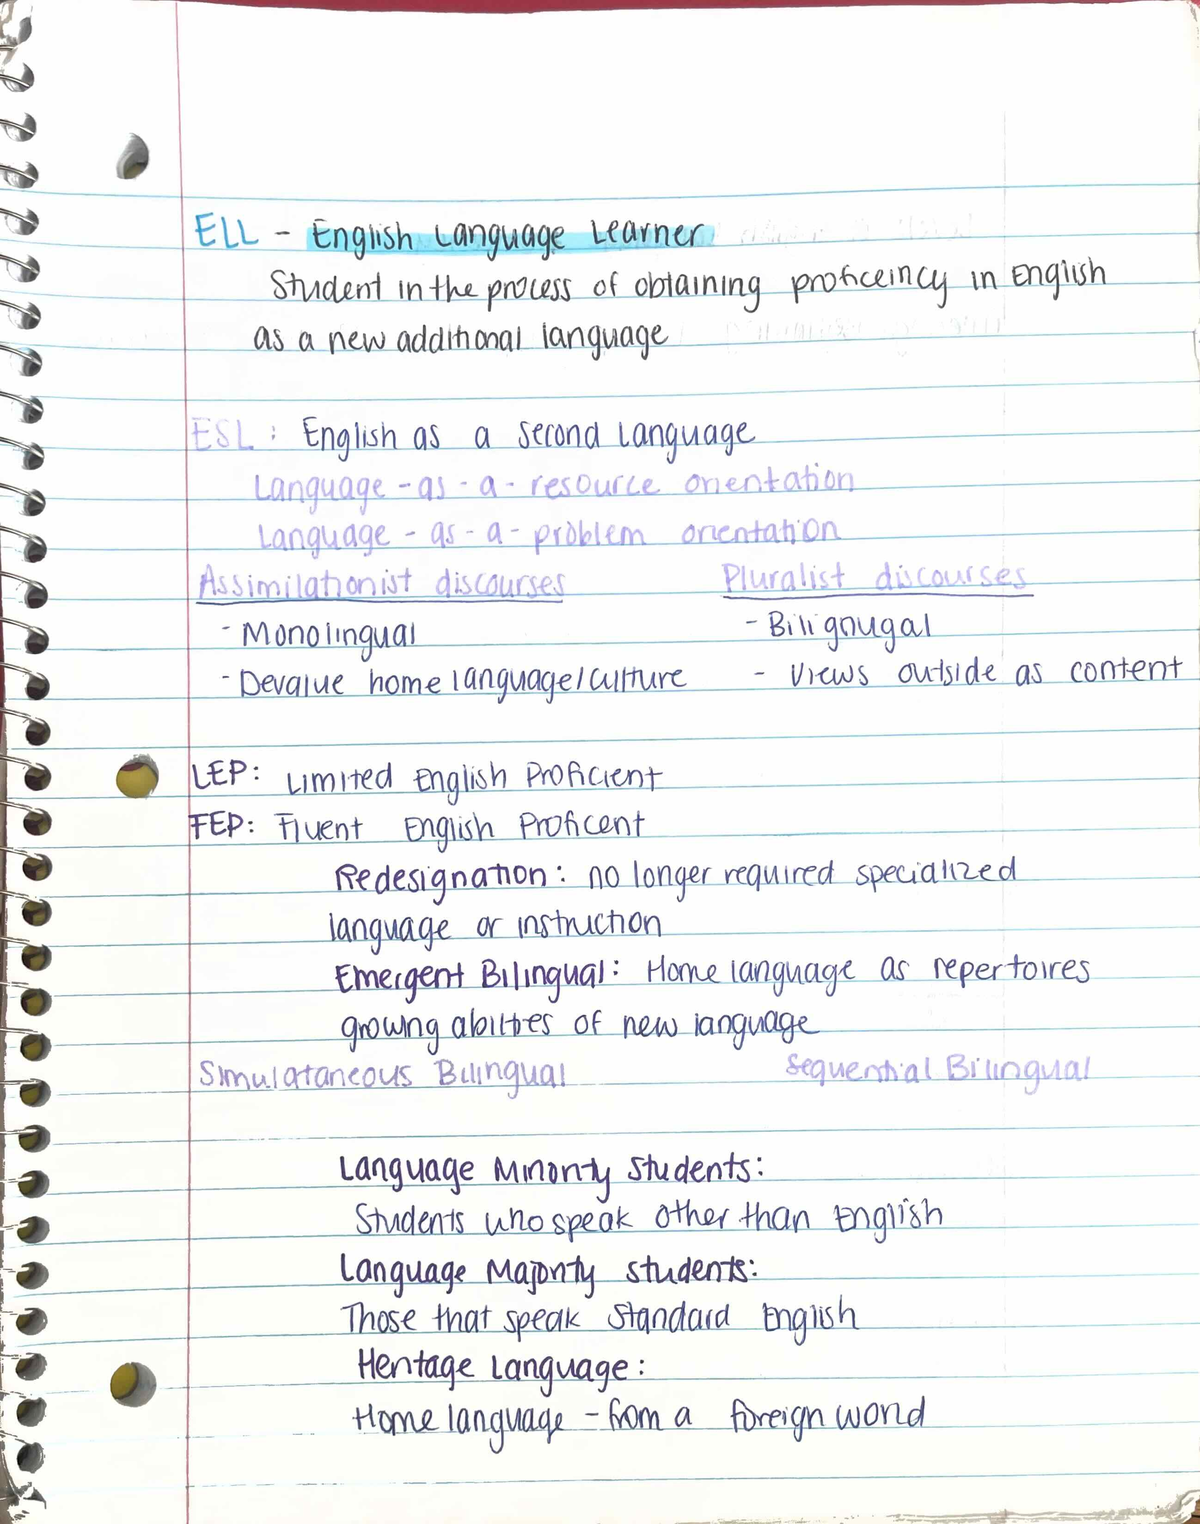 ELL - English Language Learner
Student in the process of obtaining proficeincy in English
as a new additional language
ESL: English as a second language
Language-as-a-resource orientation
Language-as-a-problem orientation
Assimilationist discourses Pluralist discourses
- Monolingual - Bilignougal
- Devalue home language/culture - Views outside as content
LEP: Limited English Proficient
FEP: Fluent English Proficent
Redesignation: no longer required specialized
language or instruction
Emergent Bilingual: Home language as repertoires
growing abilities of new language
Simulataneous Bilingual Sequential Bilingual
Language Minority Students:
Students who speak other than English
Language Majority students:
Those that speak Standard English
Heritage Language:
Home language - from a foreign world